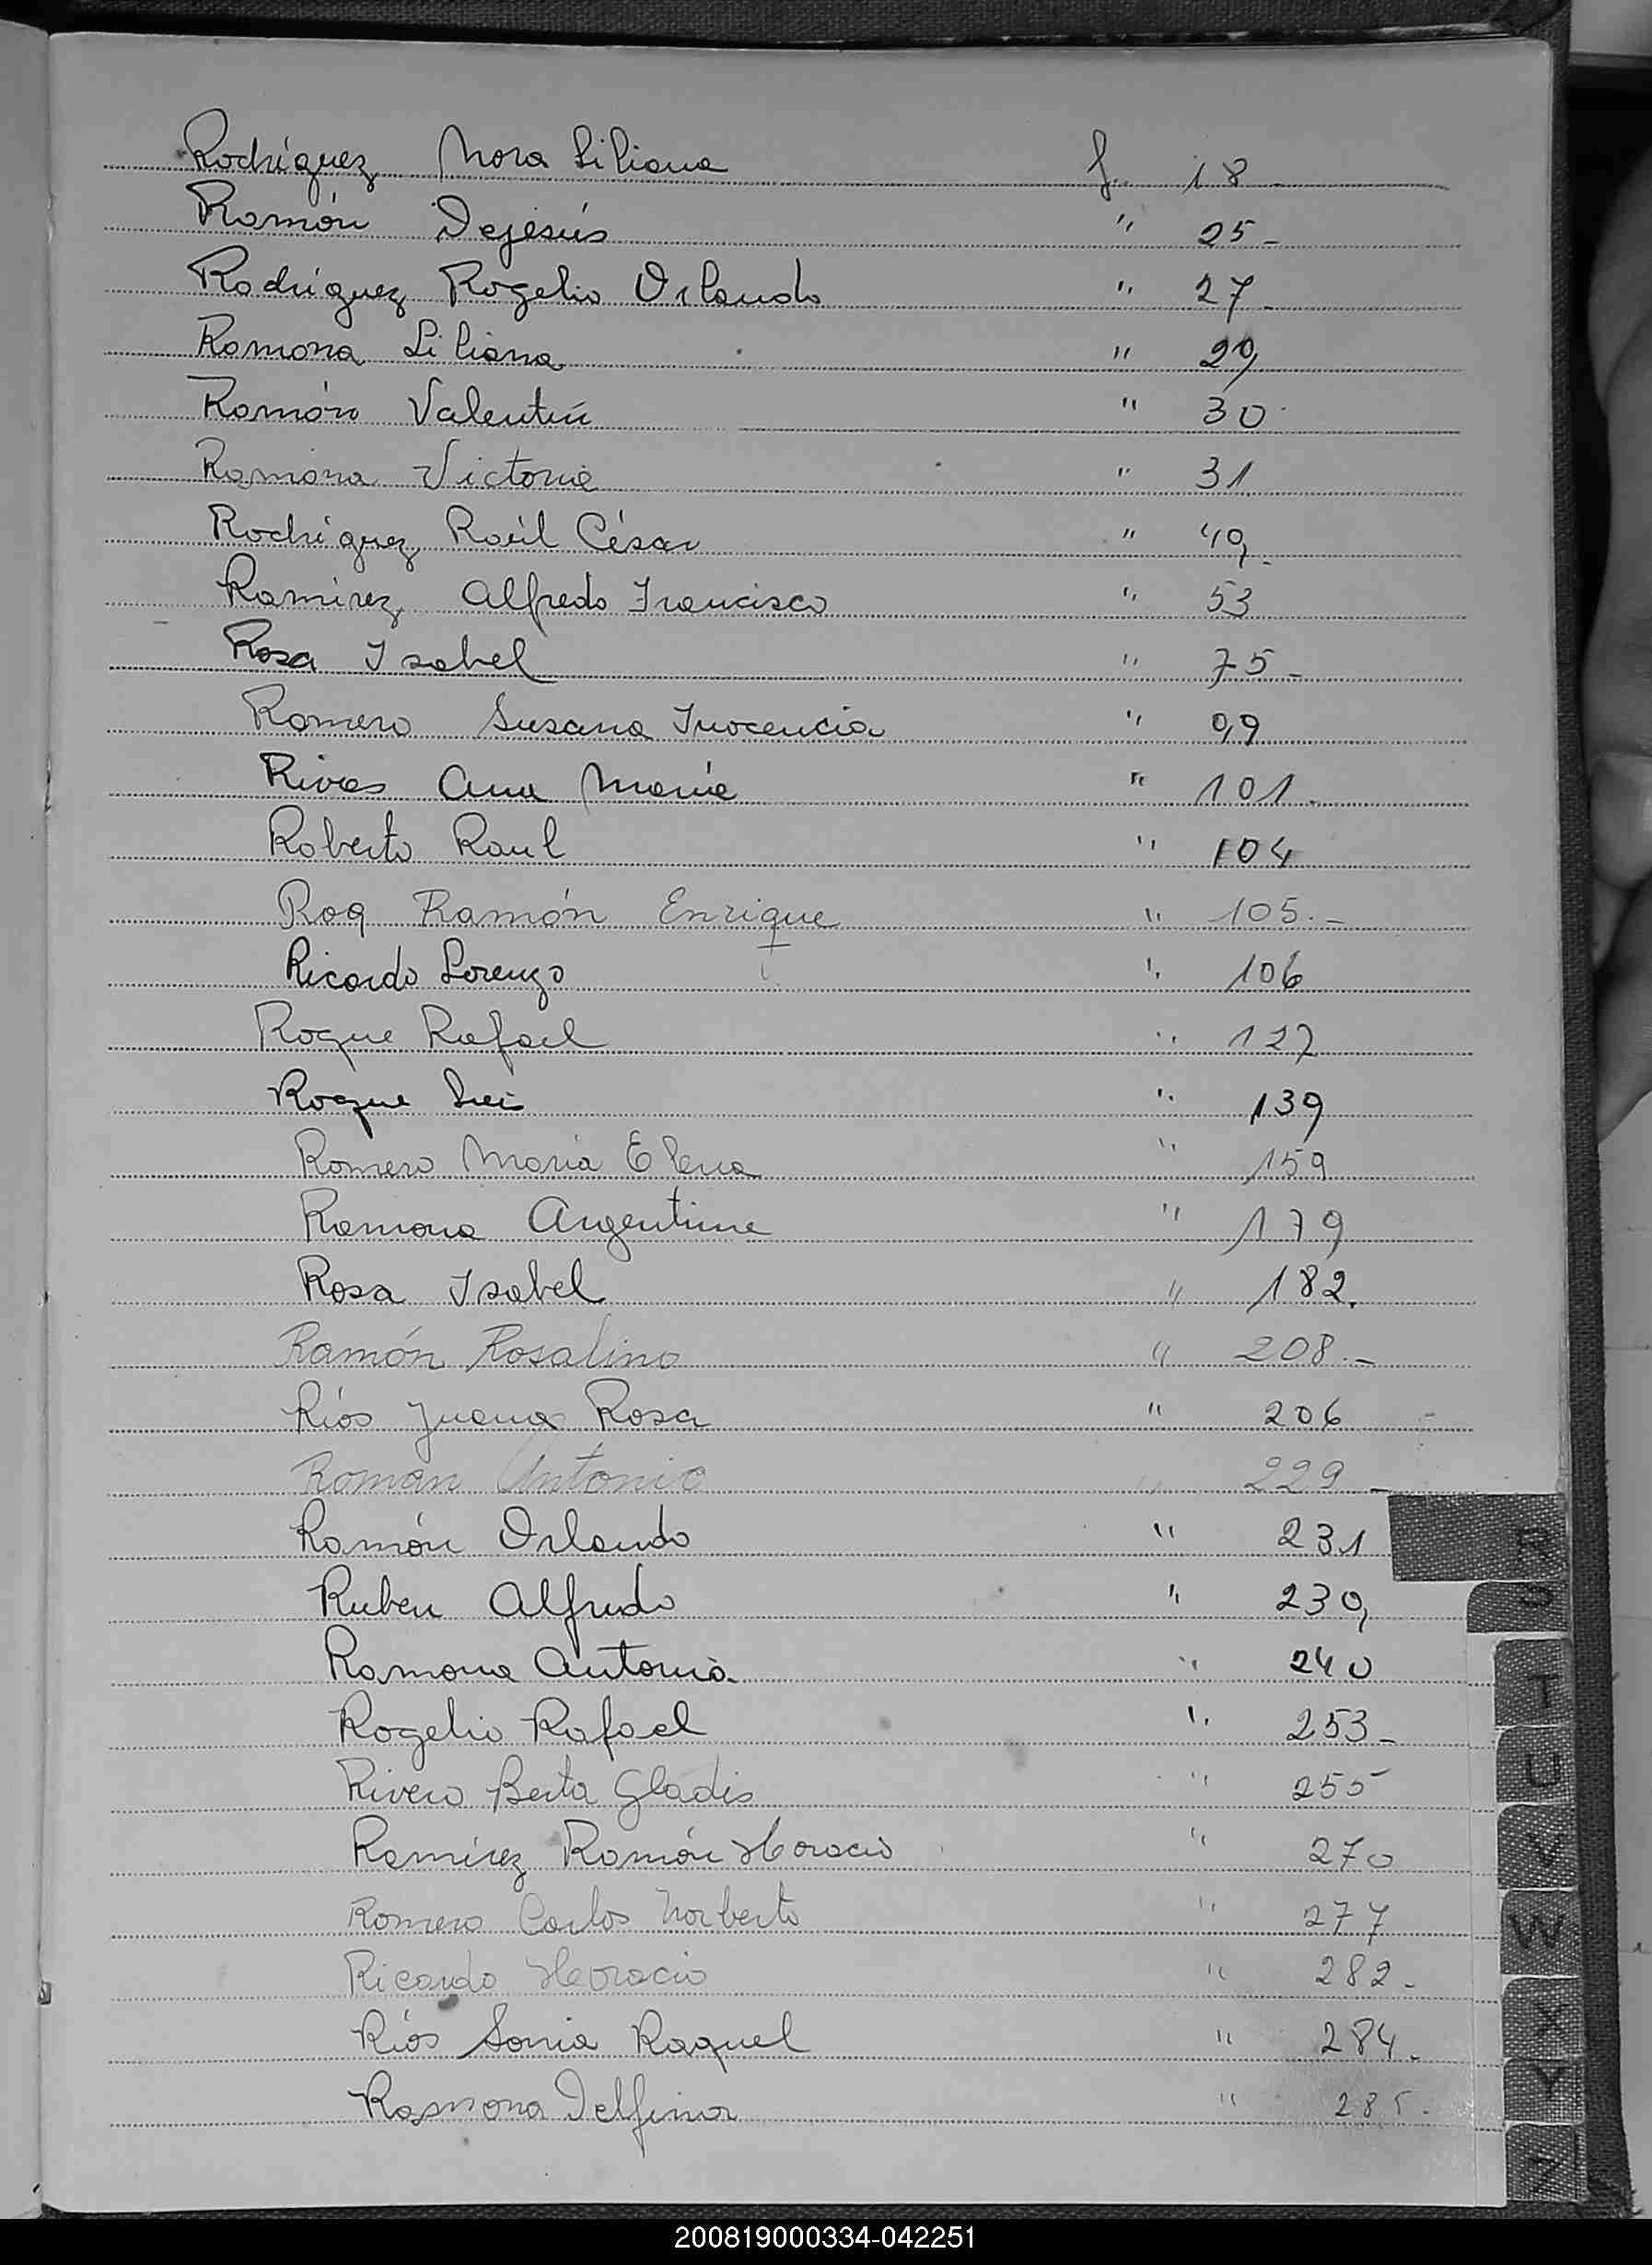 Rodríguez Nora Liliana f. 18 -
Ramón Dejesús " 25 -
Rodríguez Rogelio Orlando " 27 -
Ramona Liliana " 29
Ramón Valentín " 30
Ramona Victoria " 31
Rodríguez Raúl César " 49 -
Ramírez Alfredo Francisco " 53
Rosa Isabel " 75 -
Romero Susana Inocencia " 99
Rivas Ana María " 101 -
Roberto Raul " 104
Roq Ramón Enrique " 105.-
Ricardo Lorenzo " 106
Roque Rafael " 127
Roque Luis " 139
Romero María Elena " 159
Ramona Argentina " 179
Rosa Isabel " 182.
Ramón Rosalino " 208.-
Ríos Juana Rosa " 206
Roman Antonio " 229 -
Ramón Orlando " 231
Ruben Alfredo " 239
Ramona Antonia " 240
Rogelio Rafael " 253 -
Rivero Berta Gladis " 255
Ramírez Ramón Horacio " 270
Romero Carlos Norberto " 277
Ricardo Horacio " 282 -
Ríos Sonia Raquel " 284 -
Ramona Delfina " 285 -
R
S
T
U
V
W
X
Y
Z
200819000334-042251